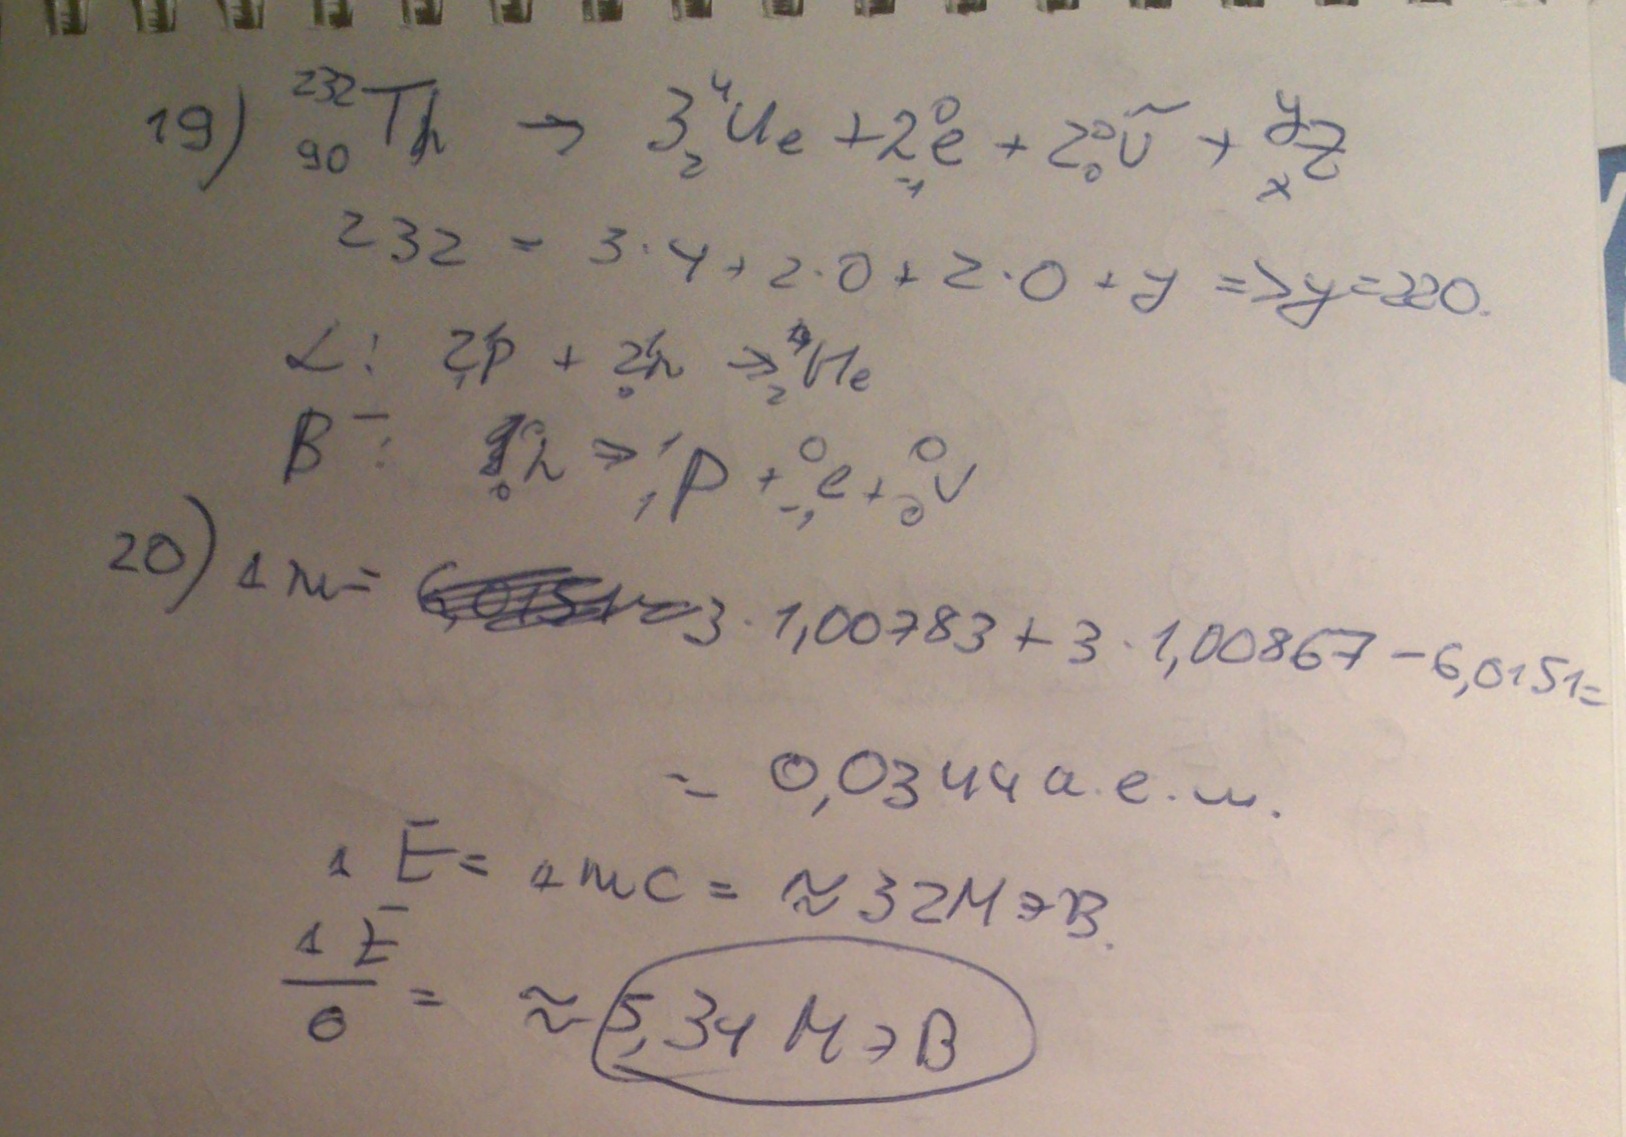 19) ²³²₉₀Th → 3⁴₂He + 2⁰₋₁e + 2⁰₀ν̃ + ʸₓZ
232 = 3·4 + 2·0 + 2·0 + y => y=220.
α: 2¹₁p + 2¹₀n → ⁴₂He
β⁻: ¹₀n → ¹₁p + ⁰₋₁e + ⁰₀ν
20) Δm = 3·1,00783 + 3·1,00867 − 6,0151 =
= 0,0344 а.е.м.
ΔE = Δmc = ≈ 32МэВ.
ΔE/6 = ≈ 5,34 МэВ